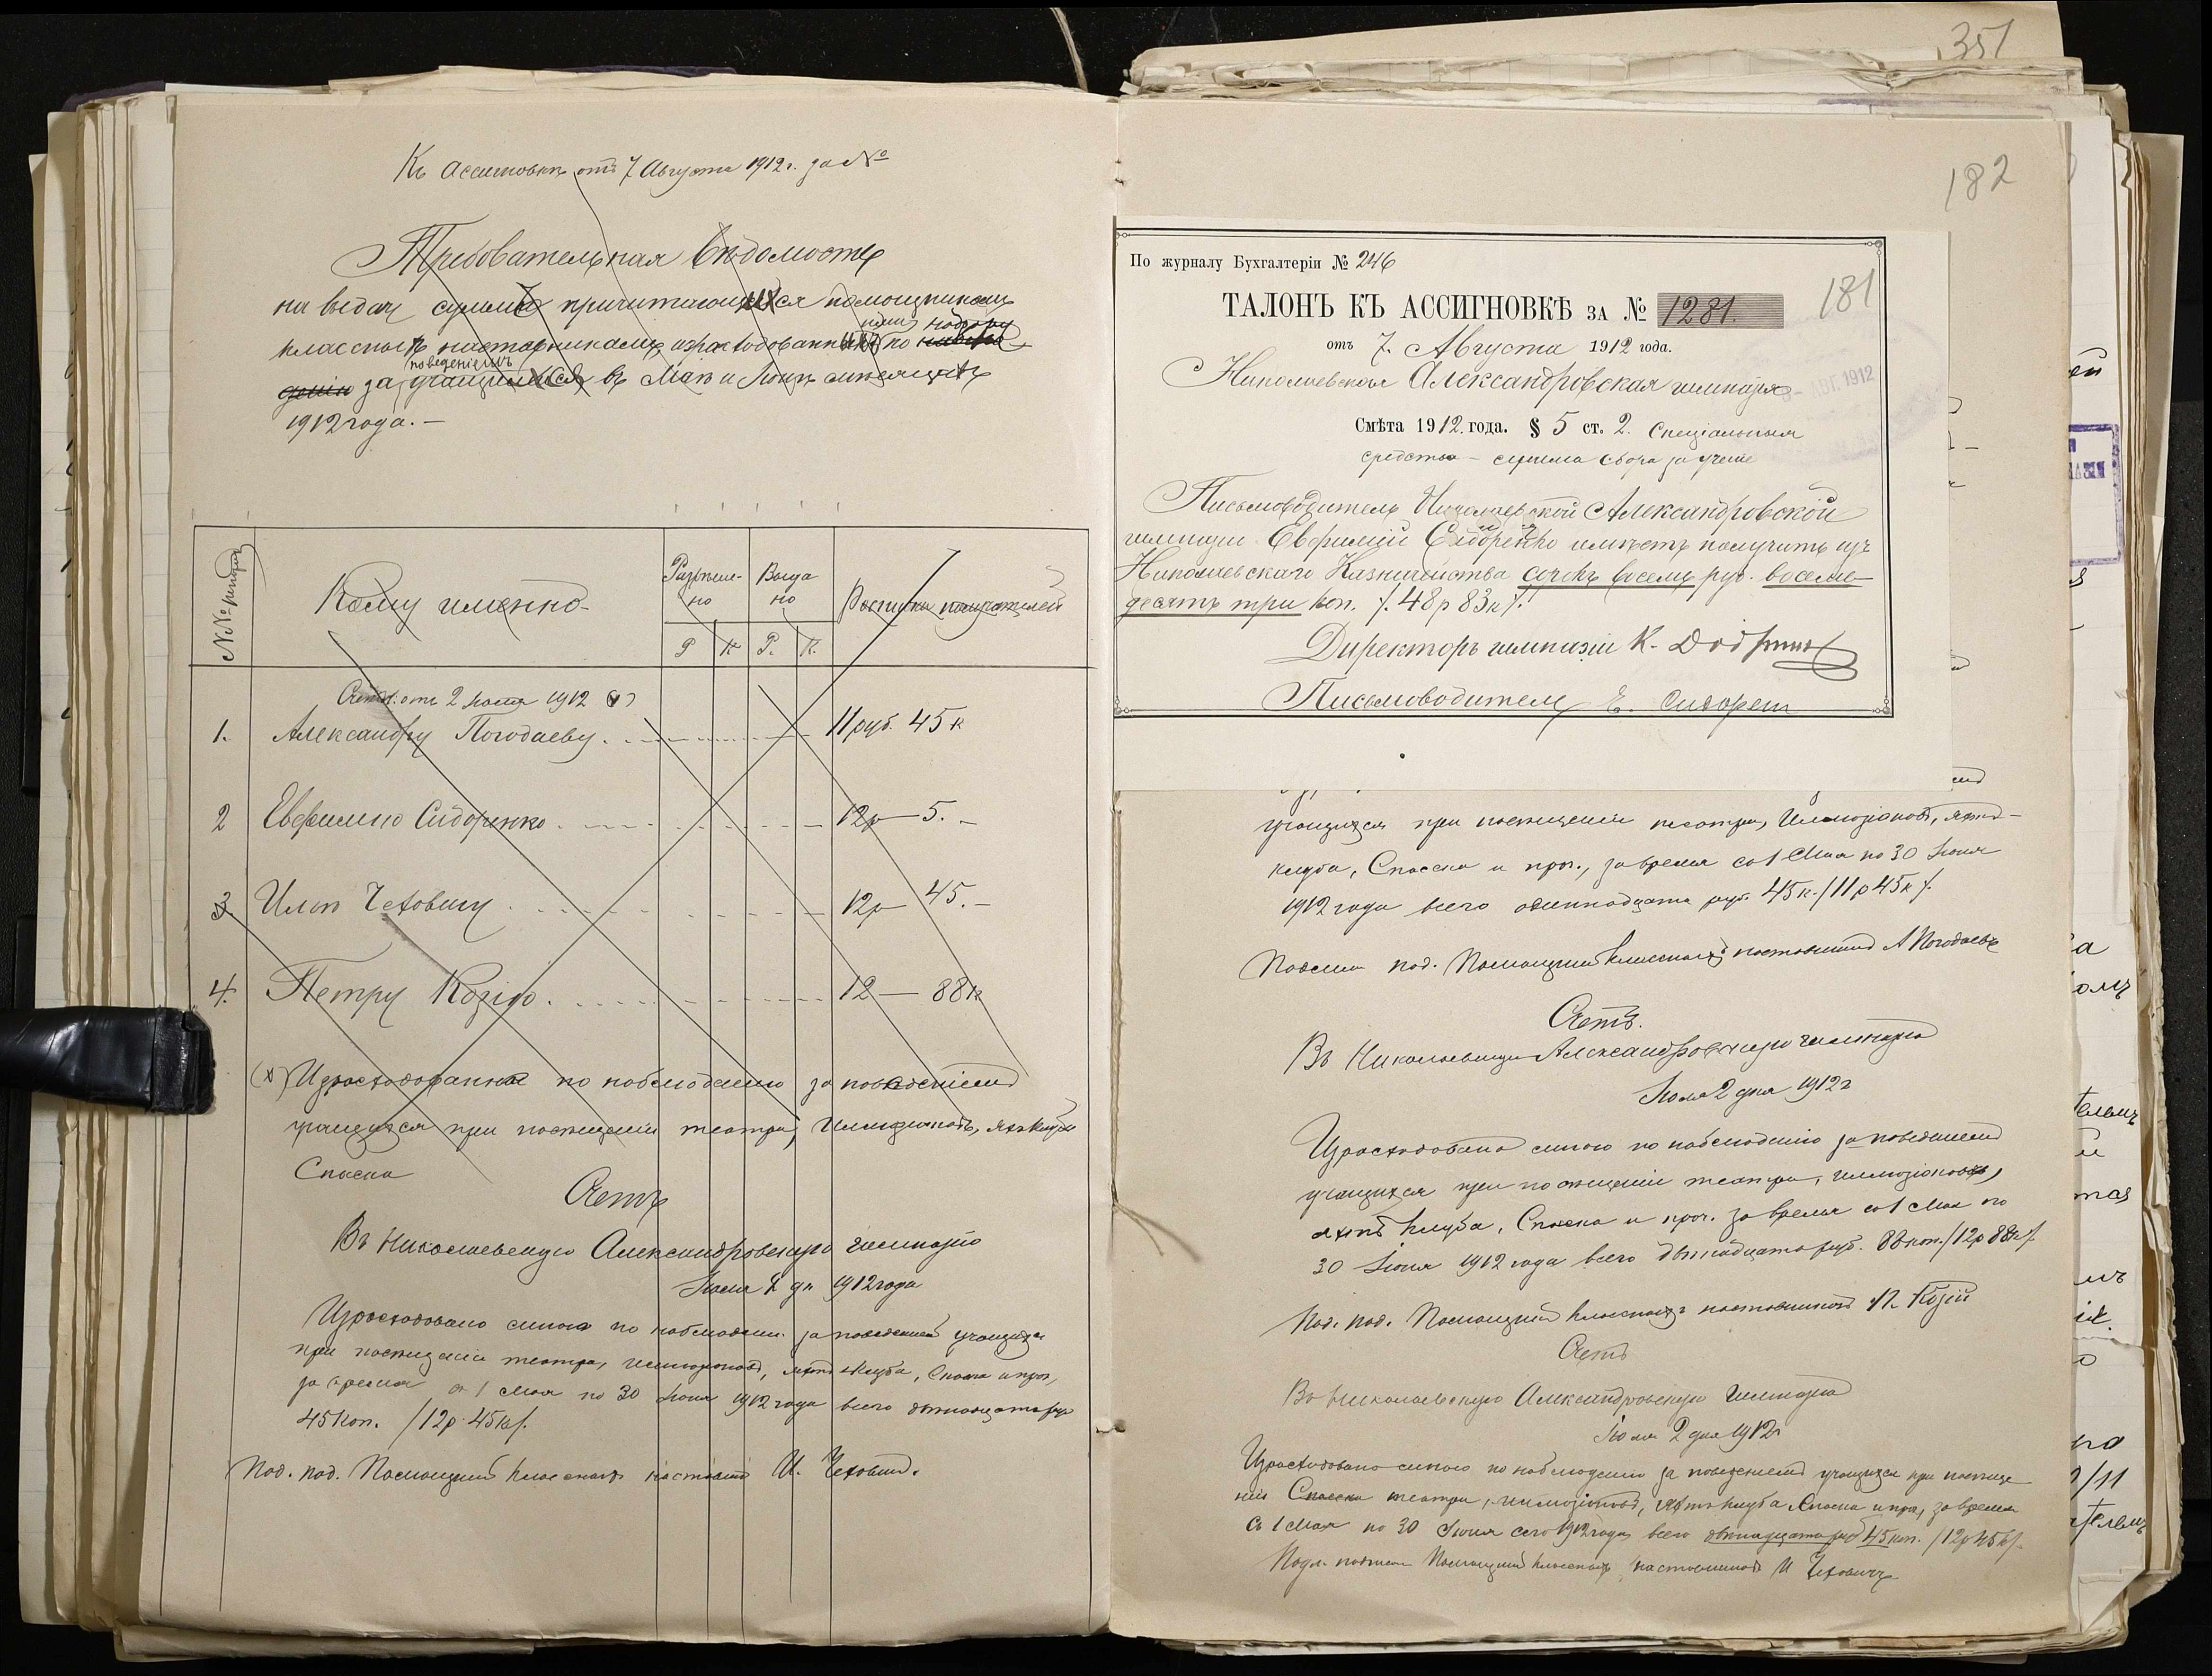 Къ ассигновкѣ отъ 7 Августа 1912 г. за №
Требовательная вѣдомость
на выдачу суммы причитающихся помощникамъ
классныхъ наставниковъ, израсходованныхъ ими по надзору
за поведеніемъ учащихся въ Маѣ и Іюнѣ мѣсяцахъ
1912 года. —
№№ порядка
Кому именно
Разрѣшено
Выдано
Росписка получателей
Р К Р. К.
Счетъ отъ 2 Іюля 1912 (х)
1. Александру Погодаеву 11 руб. 45 к
2 Евфимию Сидоренко 12р — 5. —
3 Ильѣ Чеховичу 12р 45. —
4. Петру Козію 12 — 88к
(х) Израсходованныя по наблюденію за поведеніемъ
учащихся при посѣщеніи театра, иллюзіоновъ, яхтъ клуба
Спаска
Счетъ
Въ Николаевскую Александровскую гимназію
Іюля 2 дн 1912 года
Израсходовано мною по наблюденію за поведеніемъ учащихся
при посѣщеніи театра, иллюзіоновъ, яхтъ клуба, Спаска и проч,
за время съ 1 Мая по 30 Іюня 1912 года всего двѣнадцать руб
45 коп. /12р. 45к/.
Под. под. Помощникъ классныхъ наставник И. Чеховичъ.
351
182
По журналу Бухгалтеріи № 246
181
ТАЛОНЪ КЪ АССИГНОВКѢ ЗА № 1281.
отъ 7. Августа 1912 года.
АВГ. 1912
Николаевская Александровская гимназія
Смѣта 1912 года. § 5 ст. 2. Спеціальныя
средства — сумма сбора за ученіе
Письмоводитель Николаевской Александровской
гимназіи Евфимій Сидоренко имѣетъ получить изъ
Николаевскаго Казначейства сорокъ восемь руб. восемь-
десятъ три коп. /. 48 р 83 к /.
Директоръ гимназіи К.
Письмоводитель Е. Сидорен
учащихся при посѣщеніи театра, иллюзіоновъ, яхтъ-
клуба, Спаска и проч., за время со 1 Мая по 30 Іюня
1912 года всего одиннадцать руб. 45 к. /11 р 45 к /.
Подлин под. Помощникъ классныхъ наставниковъ А Погодаевъ
Счетъ.
Въ Николаевскую Александровскую гимназію
Іюля 2 дня 1912 г
Израсходовано мною по наблюденію за поведеніемъ
учащихся при посѣщеніи театра, иллюзіоновъ,
яхтъ клуба, Спаска и проч. за время со 1 Мая по
30 Іюня 1912 года всего двѣнадцать руб. 88 коп. /12р 88к/.
Под. под. Помощникъ классныхъ наставниковъ П. Козій
Счетъ
Въ Николаевскую Александровскую гимназію
Іюля 2 дня 1912 г
Израсходовано мною по наблюденію за поведеніемъ учащихся при посѣще-
ніи Спаска театра, иллюзіоновъ, яхтъ клуба Спаска и проч, за время
съ 1 Мая по 30 Іюня сего 1912 года, всего двѣнадцать руб 45 коп. /12р 45к/.
Подл. подписал Помощникъ классныхъ наставниковъ И Чеховичъ